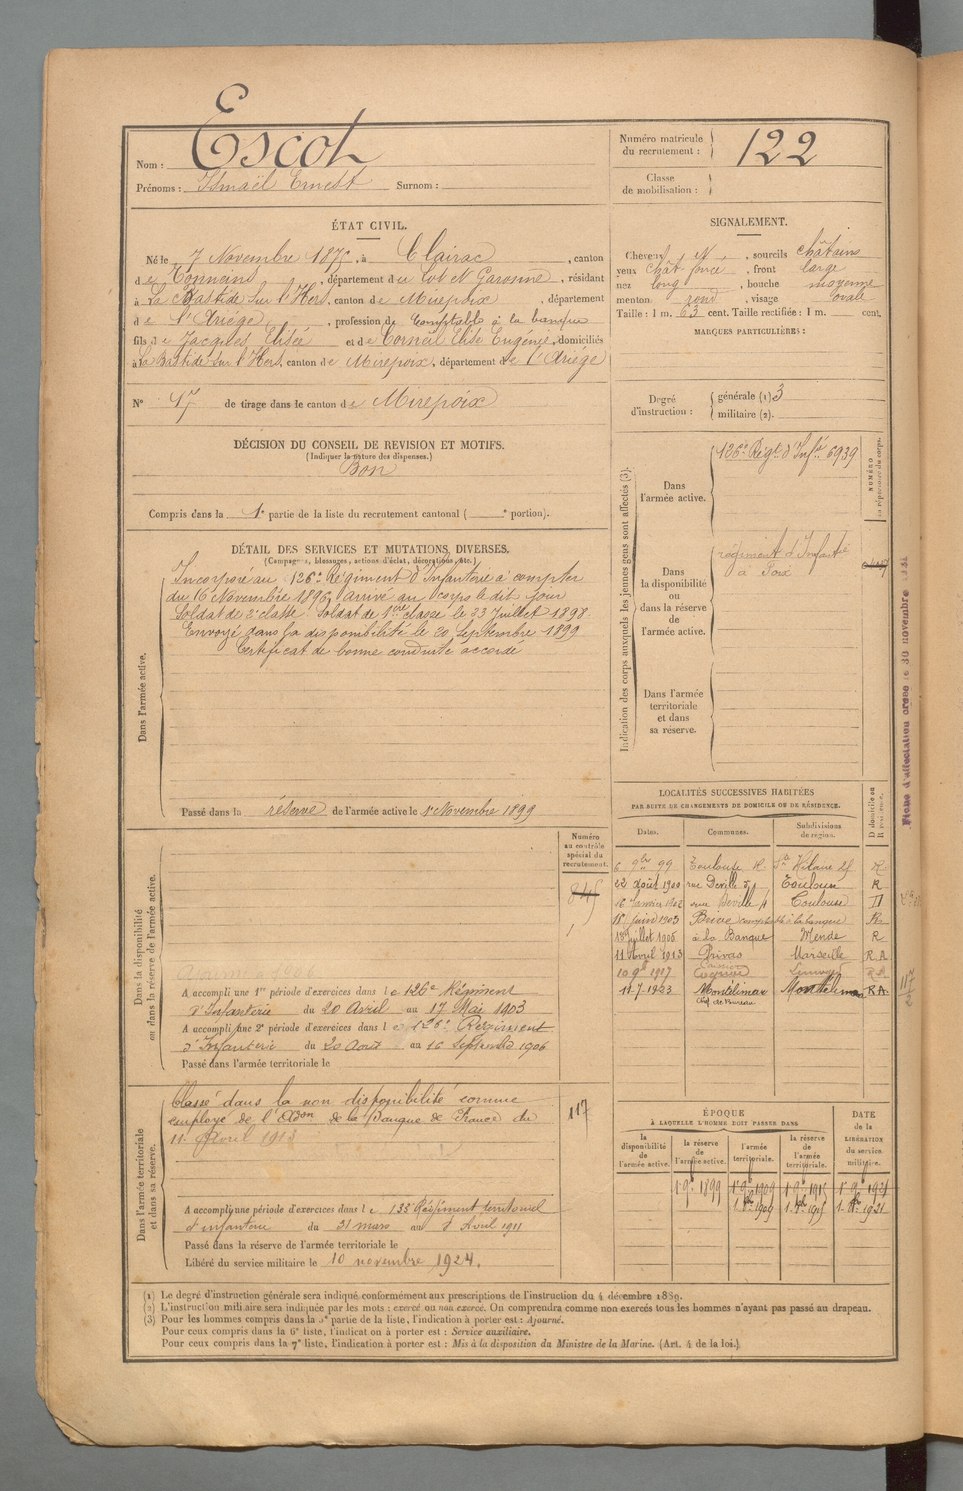 Nom : Escot
Prénoms : Ismaël Ernest Surnom :
Numéro matricule du recrutement : 122
Classe de mobilisation :
ÉTAT CIVIL.
Né le 7 Novembre 187, à Clairac, canton
de Tonneins, département du Lot et Garonne, résidant
à La Bastide sur l'Hers, canton de Mirepoix, département
de l'Ariège, profession de Comptable à la banque
fils de Jacques Elisée et de Corneil Elise Eugénie, domiciliés
à La Bastide sur l'Hers, canton de Mirepoix, département de l'Ariège
SIGNALEMENT.
Cheveux et N, sourcils châtains
yeux chât foncé, front large
nez long, bouche moyenne
menton rond, visage ovale
Taille : 1 m. 63 cent. Taille rectifiée : 1 m. cent.
MARQUES PARTICULIÈRES :
N° 17 de tirage dans le canton de Mirepoix
Degré d'instruction : générale (1) 3
militaire (2).
DÉCISION DU CONSEIL DE REVISION ET MOTIFS.
(Indiquer la nature des dispenses.)
Bon
Compris dans la 1e partie de la liste du recrutement cantonal ( e portion).
DÉTAIL DES SERVICES ET MUTATIONS DIVERSES.
(Campagnes, blessures, actions d'éclat, décorations, etc.)
Dans l'armée active.
Incorporé au 126e Régiment d'Infanterie à compter
du 16 Novembre 1896, arrivé au corps le dit jour
Soldat de 2e classe. Soldat de 1ere classe le 23 Juillet 1898.
Envoyé dans la disponibilité le 20 Septembre 1899
Certificat de bonne conduite accordé
Passé dans la réserve de l'armée active le 1er Novembre 1899
Indication des corps auxquels les jeunes gens sont affectés (3).
NUMÉRO au répertoire du corps.
Dans l'armée active.
126e Régt d'Infie 6939
Dans la disponibilité ou dans la réserve de l'armée active.
régiment d'Infantie
à Foix
Dans l'armée territoriale et dans sa réserve.
Fiche d'affectation créée le 30 novembre
LOCALITÉS SUCCESSIVES HABITÉES
PAR SUITE DE CHANGEMENTS DE DOMICILE OU DE RÉSIDENCE.
Dates. Communes. Subdivisions de région. D domicile ou R résidence.
6 9bre 99 Toulouse R
22 août 1900 rue Deville Toulouse R
16 Janvier 1902 rue Deville 4 Toulouse D
15 Juin 1903 Brive comptable à la banque R
18 Juillet 1906 à la Banque Mende R
11 Avril 1913 Privas Marseille R.A
10 9b 1917 Limoges
11.7.1923 Montélimar Montélimar R.A.
Chef de Bureau
Numéro au contrôle spécial du recrutement.
845
Dans la disponibilité ou dans la réserve de l'armée active.
A accompli une 1re période d'exercices dans le 126e Régiment
d'Infanterie du 20 Avril au 17 Mai 1903
A accompli une 2e période d'exercices dans le 126e Régiment
d'Infanterie du 20 Août au 16 Septembre 1906
Passé dans l'armée territoriale le
Dans l'armée territoriale et dans sa réserve.
117
Classé dans la non disponibilité comme
employé de l'Adon de la Banque de France du
11 Avril 1913
A accompli une période d'exercices dans le 133e Régiment territorial
d'infanterie du 31 mars au 8 Avril 1911
Passé dans la réserve de l'armée territoriale le
Libéré du service militaire le 10 novembre 1924.
ÉPOQUE
À LAQUELLE L'HOMME DOIT PASSER DANS
DATE de la LIBÉRATION du service militaire.
la disponibilité de l'armée active. la réserve de l'armée active. l'armée territoriale. la réserve de l'armée territoriale.
1 9b 1899 1 9b 1909 1 9b 1915 1 9b 1921
(1) Le degré d'instruction générale sera indiqué conformément aux prescriptions de l'instruction du 4 décembre 1889.
(2) L'instruction militaire sera indiquée par les mots : exercé ou non exercé. On comprendra comme non exercés tous les hommes n'ayant pas passé au drapeau.
(3) Pour les hommes compris dans la 5e partie de la liste, l'indication à porter est : Ajourné.
Pour ceux compris dans la 6e liste, l'indication à porter est : Service auxiliaire.
Pour ceux compris dans la 7e liste, l'indication à porter est : Mis à la disposition du Ministre de la Marine. (Art. 4 de la loi.)